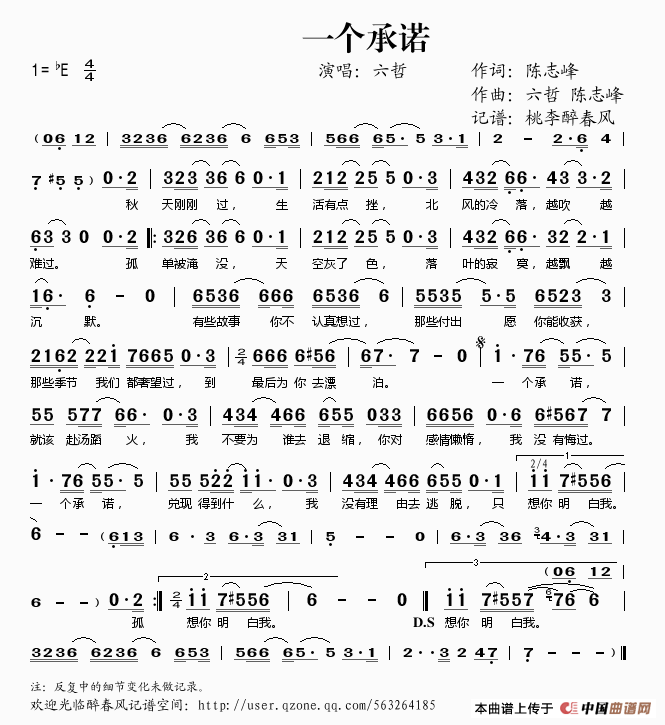 一个承诺
1=♭E 4/4 演唱：六哲 作词：陈志峰
作曲：六哲 陈志峰
记谱：桃李醉春风
(06 12 | 3236 6236 6 653 | 566 65· 5 3·1 | 2 - 2·6 4 |
7 #5 5) 0·2 | 323 36 6 0·1 | 212 25 5 0·3 | 432 66· 43 3·2 |
秋 天刚刚 过，生 活有点 挫，北 风的冷 落，越吹 越
63 3 0 0·3 |: 326 36 3 0·1 | 212 25 5 0·3 | 432 60· 32 2·1 |
难过。 孤 单被淹 没，天 空灰了 色，落 叶的寂 寞，越飘 越
16· 6 - 0 | 6536 666 6536 6 | 5535 5·5 6523 3 |
沉 默。 有些故事 你不 认真想过， 那些付出 愿 你能收获，
2162 221 7665 0·3 | 2/4 666 6#56 | 67· 7 - 0 | 1·76 55·5 |
那些季节 我们 都奢望过，到 最后为 你 去漂 泊。 一 个 承 诺，
55 577 66· 0·3 | 434 466 655 033 | 6656 0·6 6#567 7 |
就该 赴汤蹈 火， 我 不要为 谁去 退 缩，你对 感情懒惰，我 没 有悔过。
1·76 55·5 | 55 522 11· 0·3 | 434 466 655 0·1 | 2/4 11 7#556 |
一 个 承 诺， 兑现 得到什 么，我 没有理 由去 逃 脱，只 想你 明 白我。
6 - - (613 | 6·3 6·3 31 | 5 - - 0 | 6·3 36 34·3 31 |
(06 12 |
6 - -) 0·2 :| 2/4 11 7#556 | 6 - - 0 | 11 7#557 76 6 |
孤 想你 明 白我。 D.S 想你 明 白我。
3236 6236 6 653 | 566 65· 5 3·1 | 2 - 2·12 4 | 7 - - -) ||
注：反复中的细节变化未做记录。
欢迎光临醉春风记谱空间：http://user.qzone.qq.com/563264185
本曲谱上传于 中国曲谱网